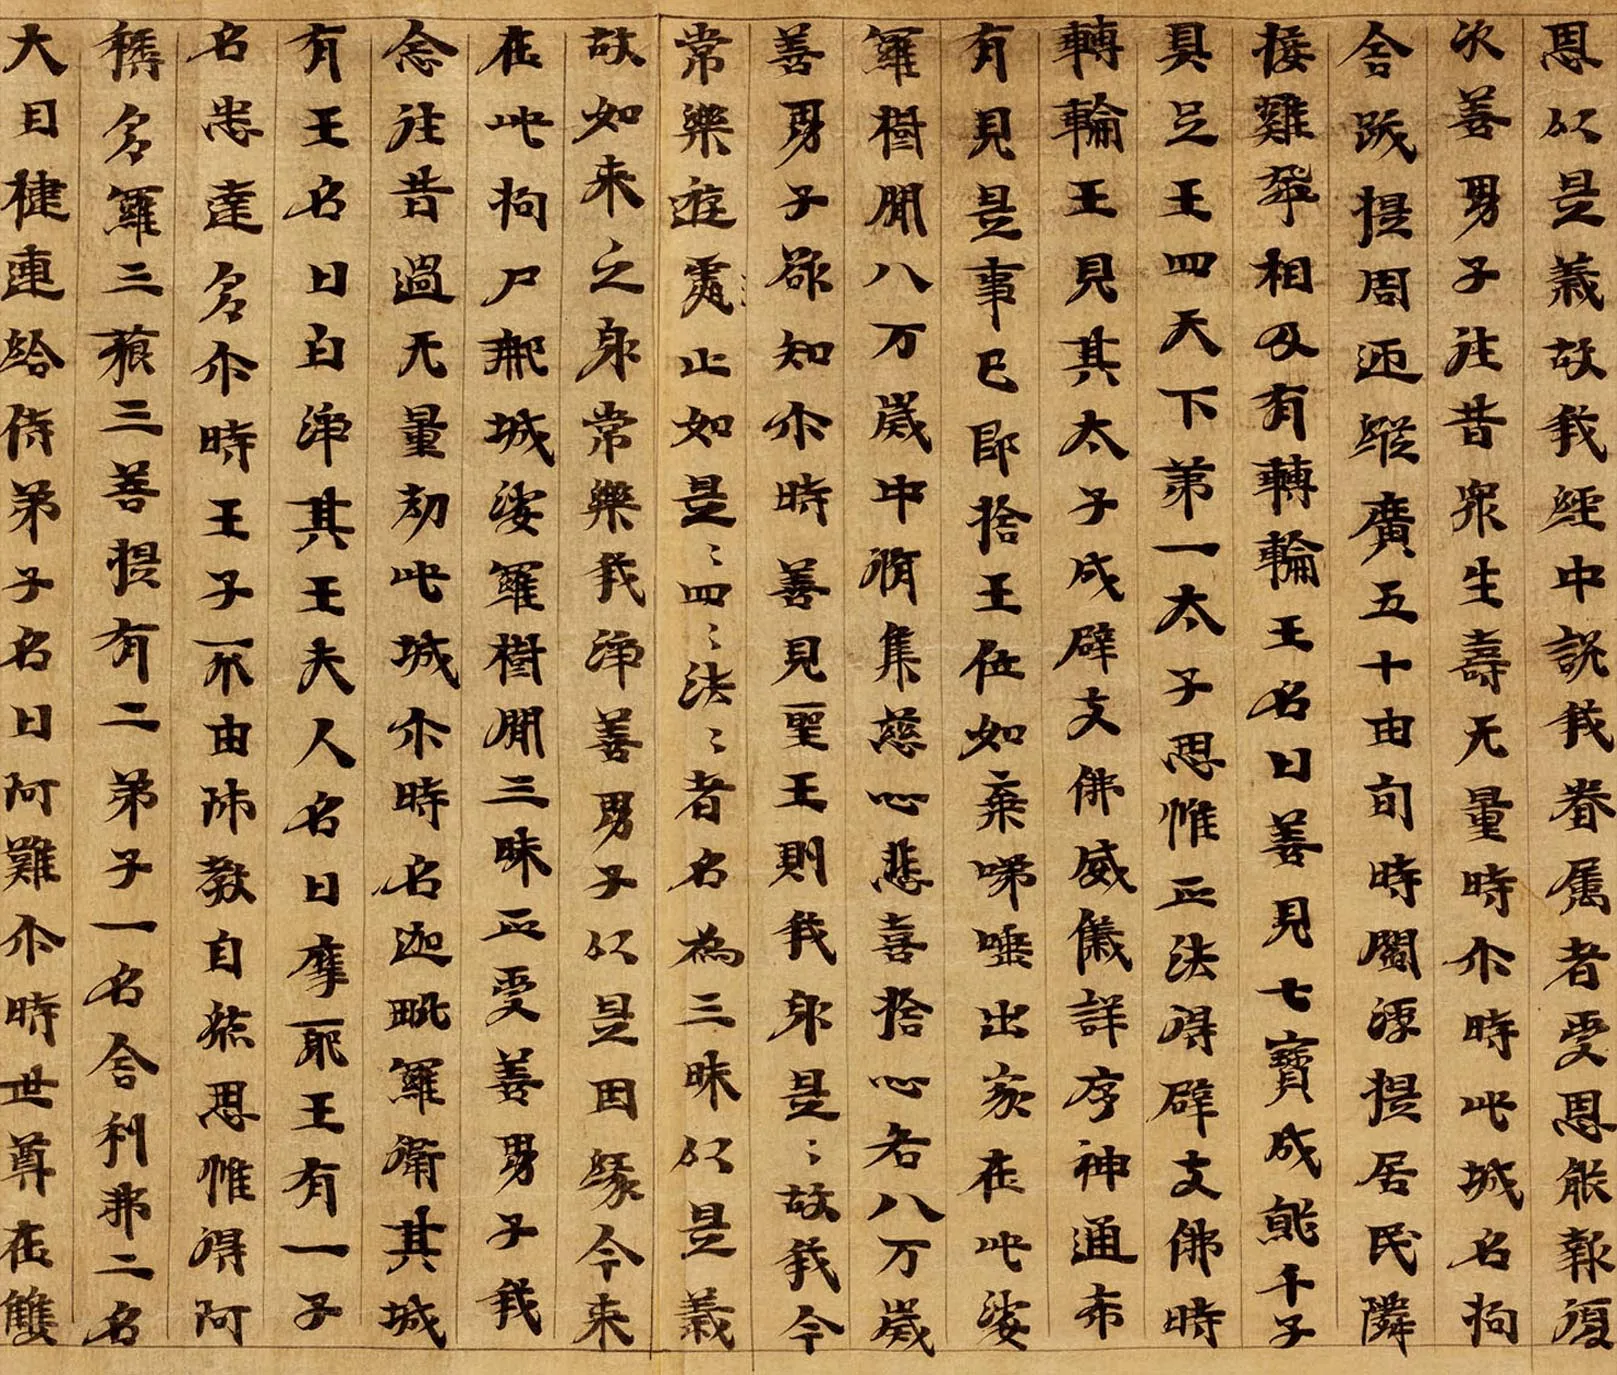 恩以是義故我經中説我眷属者受恩能報復
次善男子往昔衆生壽无量時尒時此城名拘
舍跋提周迊縱廣五十由旬時閻浮提居民隣
接雞飛相及有轉輪王名曰善見七寶成就千子
具足王四天下第一太子思惟正法得辟支佛時
轉輪王見其太子成辟支佛威儀詳序神通希
有見是事已即捨王位如棄唾出家在此娑
羅樹間八万歲中脩集慈心悲喜捨心各八万歲
善男子欲知尒時善見聖王則我身是〻故我今
常樂遊處止如是〻四〻法〻者名為三昧以是義
故如来之身常樂我淨善男子以是因緣今来
在此拘尸那城娑羅樹間三昧正受善男子我
念往昔過无量劫此城尒時名迦毗羅衛其城
有王名曰白淨其王夫人名曰摩耶王有一子
名悉達多尒時王子不由師教自然思惟得阿
耨多羅三藐三菩提有二弟子一名舍利弗二名
大目揵連給侍弟子名曰阿難尒時世尊在雙